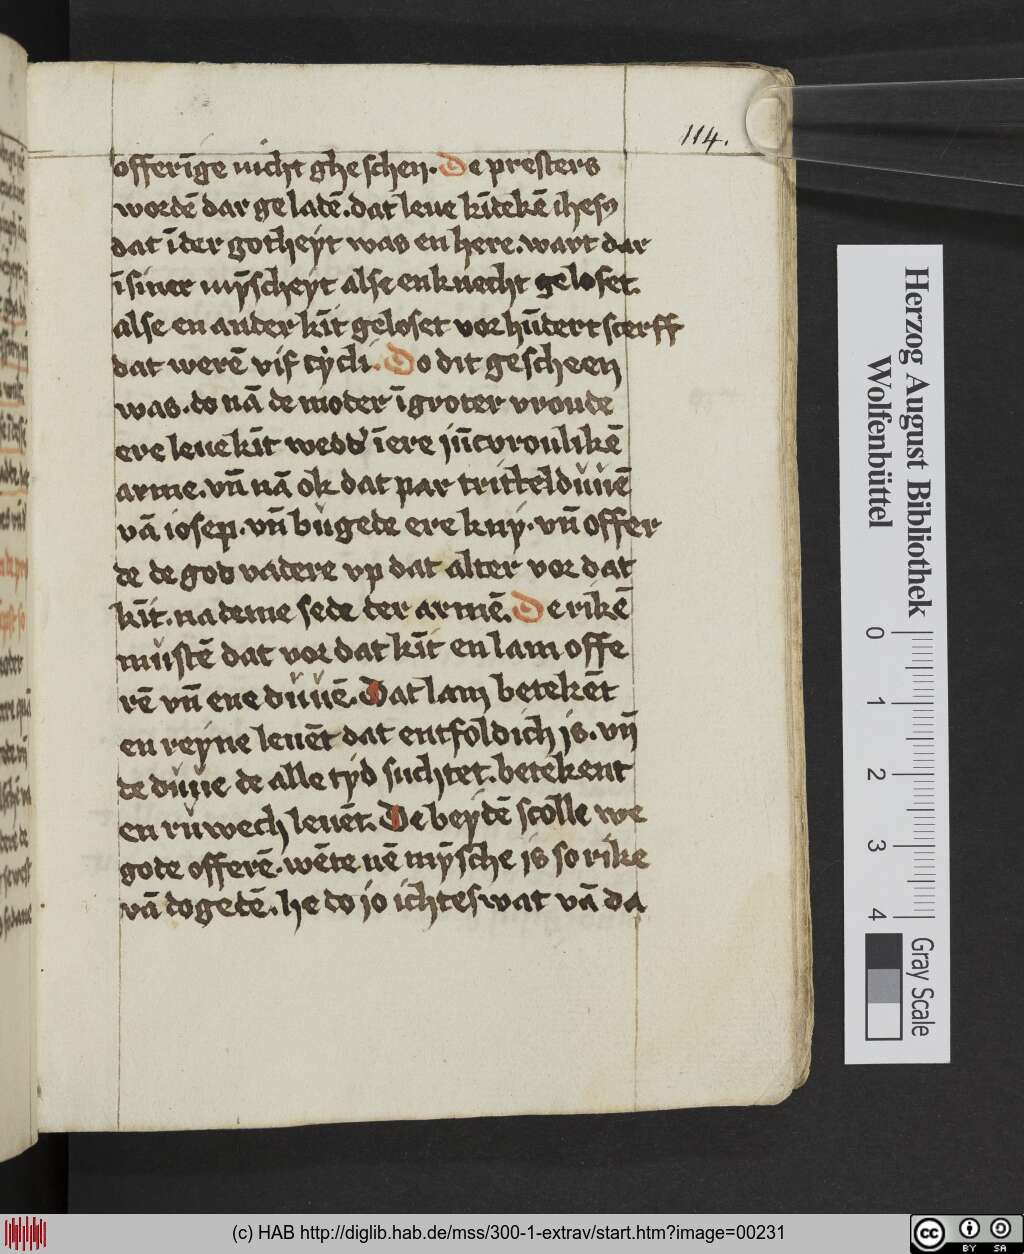 114.
offerīge nicht ghe schen. De presters
wordē dar ge ladē. dat leue kīdekē ihesꝰ
dat ī der gotheyt was en here. wart dar
ī siner mȳscheyt alse en knecht geloset.
alse en ander kīt geloset vor hūdert scerff
dat werē vif cycli. Do dit gescheen
was. do nā de moder ī groter vroude
ere leue kīt wedd' ī ere jūcvroulikē
arme. vn̄ nā ok dat par tritteldůuē
vā iosep. vn̄ bůgede ere kny. vn̄ offer
de de god vadere vp dat alter vor dat
kīt. na deme sede der armē. De rikē
můstē dat vor dat kīt en lam offe
rē vn̄ ene důuē. Dat lam betekēt
en reyne leuēt dat entfoldich is. vn̄
de důue de alle tyd suchtet. betekent
en růwech leuēt. De beydē scolle we
gode offerē. wēte nē mȳsche is so rike
vā dogedē. he do jo ichteswat vā da
Herzog August Bibliothek
Wolfenbüttel
0 1 2 3 4
Gray Scale
(c) HAB http://diglib.hab.de/mss/300-1-extrav/start.htm?image=00231
cc BY SA